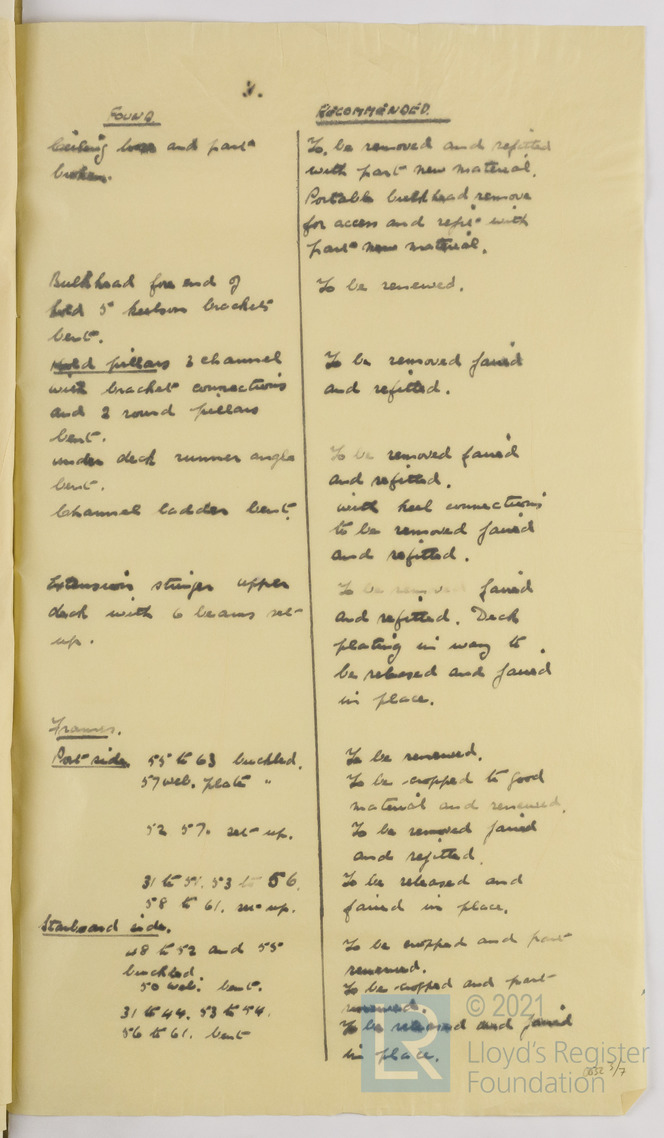 3.
FOUND
RECOMMENDED
Ceiling loose and part
broken.
To be removed and refitted
with part new material.
Portable bulkhead remove
for access and refit with
part new material.
Bulkhead fore end of
hold 5 keelson brackets
bent.
To be renewed.
Hold pillars 2 channel
with bracket connections
and 2 round pillars
bent.
To be removed faired
and refitted.
under deck runner angle
bent.
To be removed faired
and refitted.
Channel ladder bent.
with heel connections
to be removed faired
and refitted.
Extension stringer upper
deck with 6 beams set
up.
To be removed faired
and refitted. Deck
plating in way to
be released and faired
in place.
Frames.
Port side 55 to 63 buckled.
To be renewed.
57 web. plate "
To be cropped to good
material and renewed.
52 57. set up.
To be removed faired
and refitted.
31 to 51. 53 to 56.
58 to 61. set up.
To be released and
faired in place.
Starboard side.
48 to 52 and 55
buckled.
To be cropped and part
renewed.
50 web. bent.
To be cropped and part
renewed.
31 to 44. 53 to 54.
56 to 61. bent
To be released and faired
in place.
© 2021
Lloyd's Register
Foundation
0652 3/7